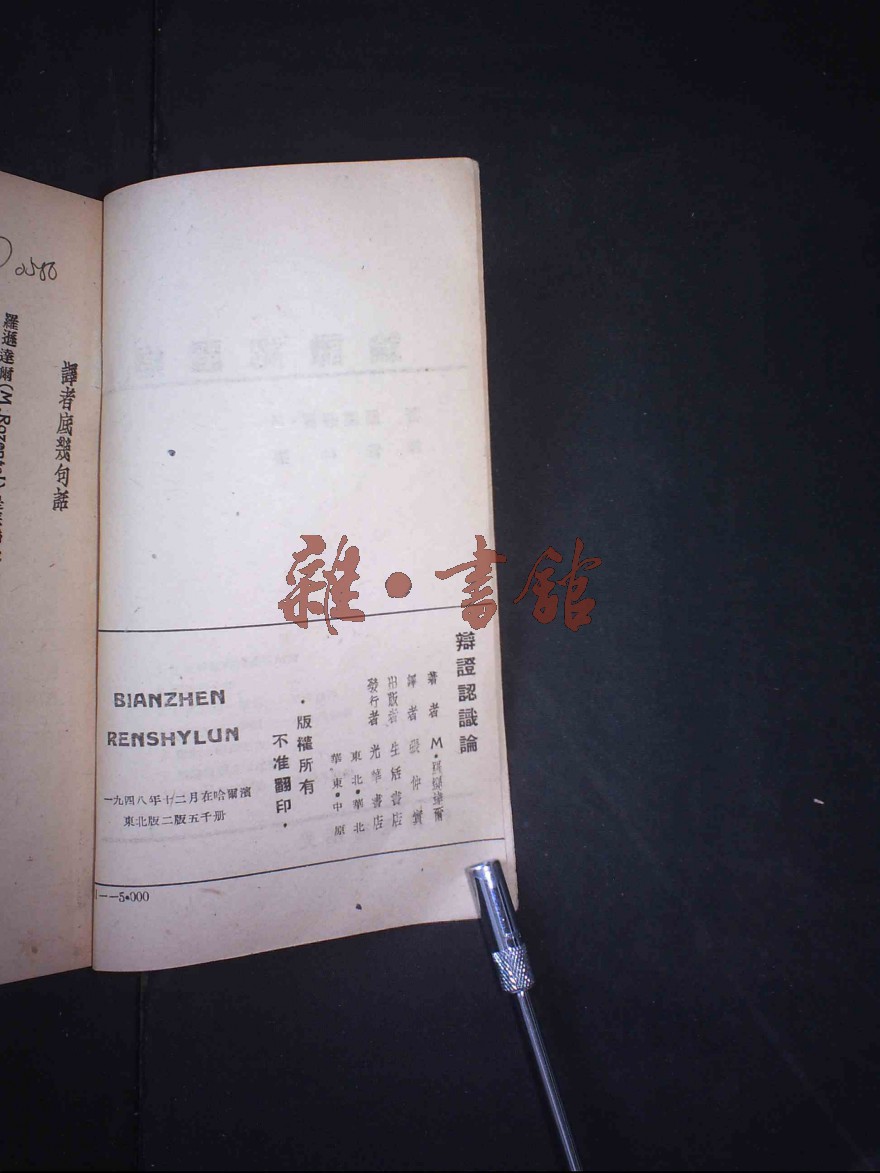 辯證認識論
著者 M·羅遜達爾
譯者 張仲實
出版者 生活書店
發行者 光華書店
東北·華北
華東·中原
·版權所有
不准翻印·
BIANZHEN
RENSHYLUN
一九四八年十二月在哈爾濱
東北版二版五千册
1--5·000
譯者底幾句話
羅遜達爾(M.Rozental)
雜·書館